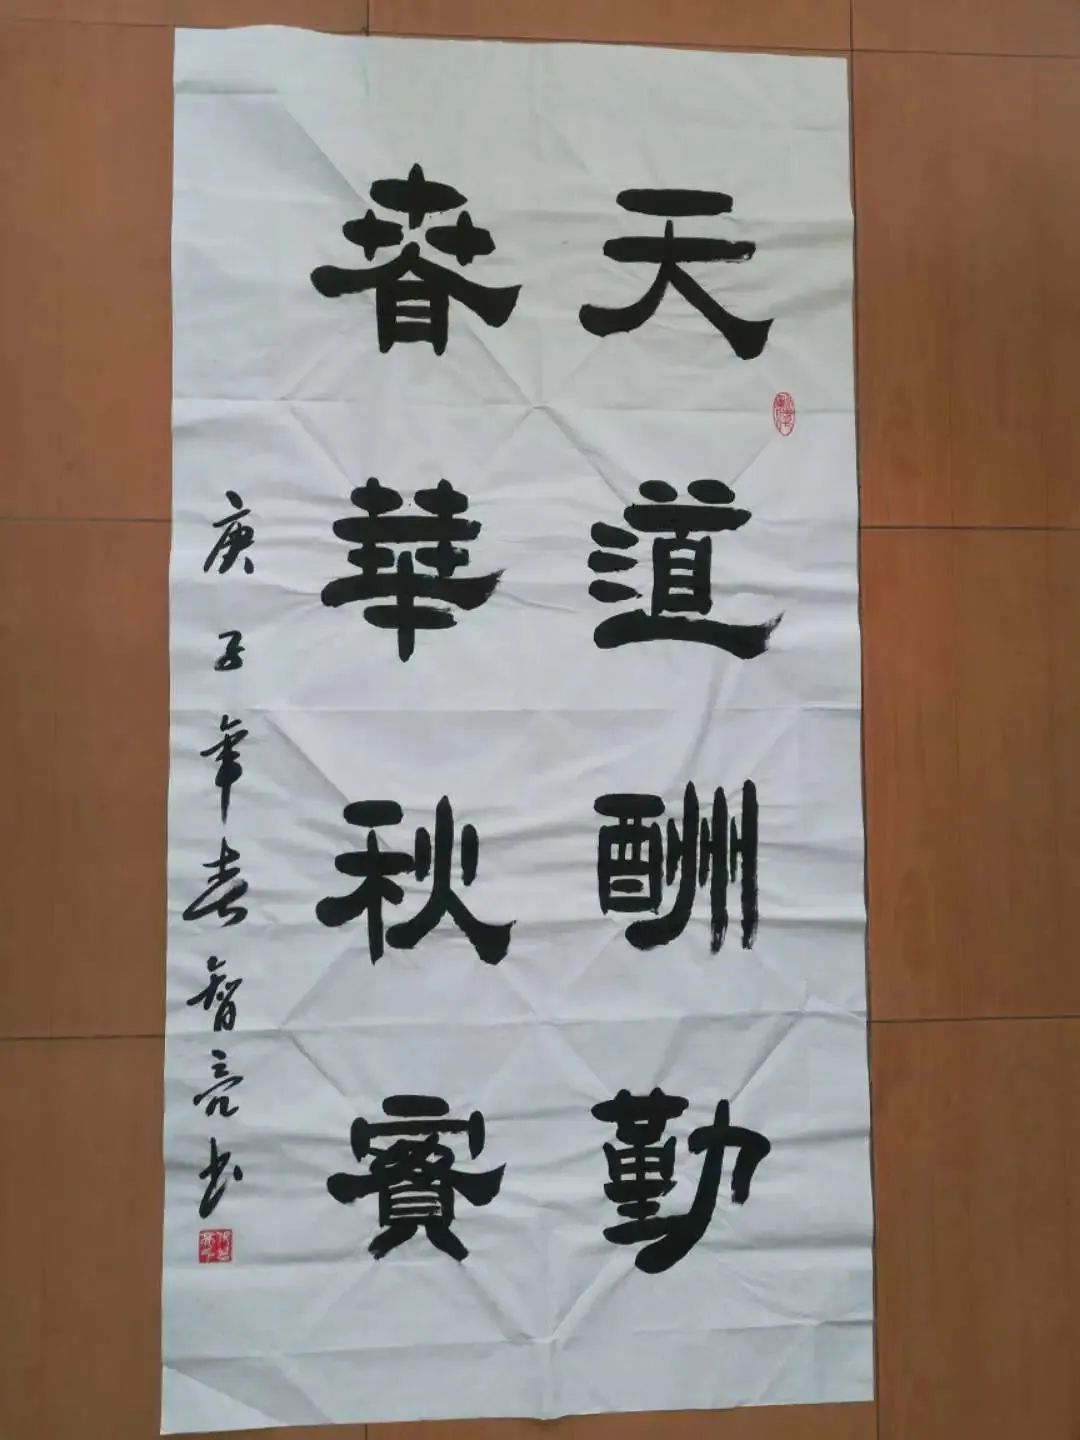 天道酬勤
春華秋實
庚子年春智亮书